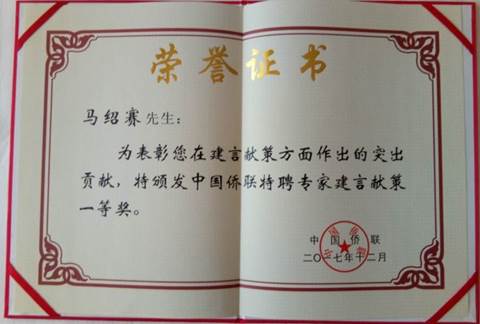 荣誉证书
马绍赛先生：
为表彰您在建言献策方面作出的突出
贡献，特颁发中国侨联特聘专家建言献策
一等奖。
中国侨联
二〇一七年十二月